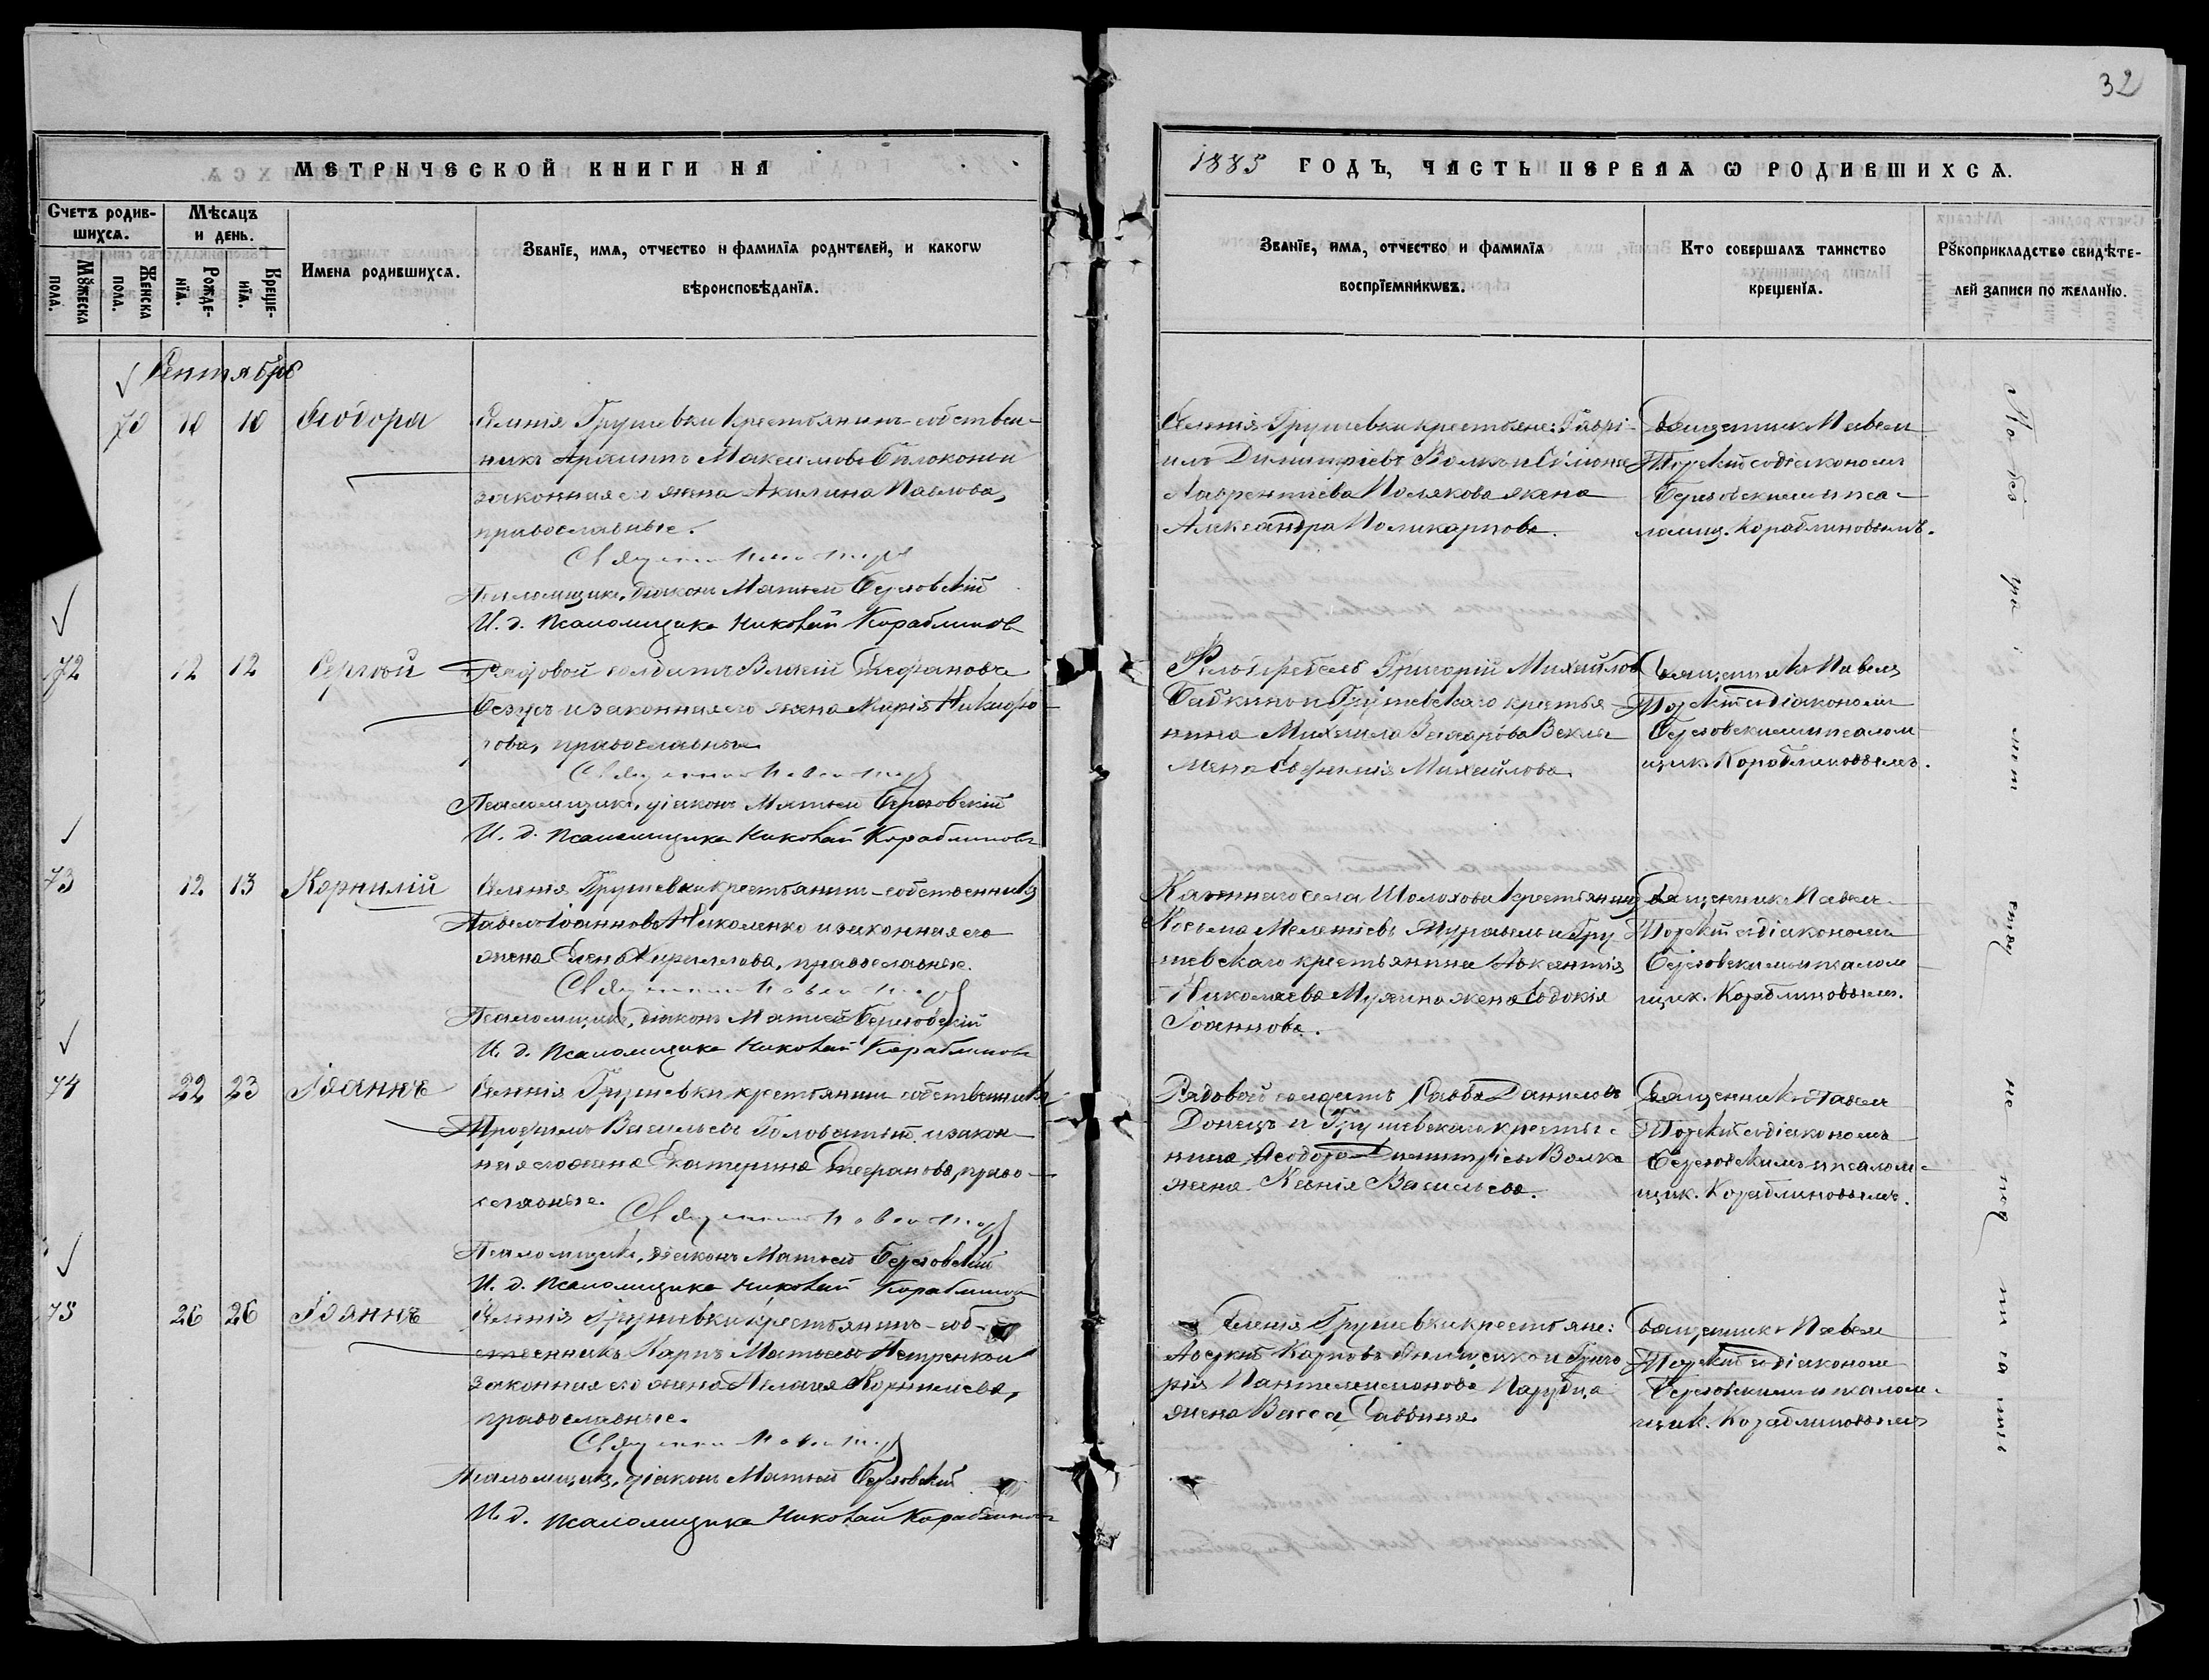 32
МЕТРИЧЕСКОЙ КНИГИ НА
1885 ГОДЪ, ЧАСТЬ ПЕРВАЯ Ѡ РОДИВШИХСѦ.
Счетъ родив-
шихсѧ.
Мѣсѧцъ
и день.
Мꙋжеска
пола.
Женска
пола.
Рожде-
нїѧ.
Креще-
нїѧ.
Имена родившихсѧ.
Званїе, имѧ, отчество и фамилїѧ родителей, и какогѡ
вѣроисповѣданїѧ.
Званїе, имѧ, отчество и фамилїѧ
воспрїемникѡвъ.
Кто совершалъ таинство
крещенїѧ.
Рꙋкоприкладство свидѣте-
лей записи по желанїю.
Сентябрь
70 10 10 Ѳеодора
Селенія Грушевки крестьянинъ-собствен-
никъ Максимовъ Бѣлоконь и
законная его жена Акилина Павлова,
православные.
Священникъ Павелъ
Псаломщикъ, діаконъ Матѳей Березовскій
И. д. псаломщика Николай Кораблиновъ
Селенія Грушевки крестьяне: Гаврі-
илъ Димитріевъ Волкъ и
Лаврентіева Полякова жена
Александра Поликарпова.
Священникъ Павелъ
съ діакономъ
Березовскимъ и пса-
ломщ. Кораблиновымъ.
72 12 12 Сергѣй
Рядовой солдатъ Стефановъ
и законная его жена Марія Никифо-
рова, православные
Священникъ Павелъ
Псаломщикъ, діаконъ Матѳей Березовскій
И. д. псаломщика Николай Кораблиновъ
Григорій Михайловъ
Бабкинъ и Грушевскаго крестья-
нина Михаила Захарова
жена Евфимія Михайлова.
Священникъ Павелъ
съ діакономъ
Березовскимъ и псалом-
щик. Кораблиновымъ.
73 12 13 Корнилій
Селенія Грушевки крестьянинъ-собственникъ
Павелъ Іоанновъ Николенко и законная его
жена Елена Кириллова, православные.
Священникъ Павелъ
Псаломщикъ, діаконъ Матѳей Березовскій
И. д. псаломщика Николай Кораблиновъ
Казеннаго села Шолохова крестьянинъ
Косьма Мелетіевъ и Гру-
шевскаго крестьянина Авксентія
Николаева жена Евдокія
Іоаннова.
Священникъ Павелъ
съ діакономъ
Березовскимъ и псалом-
щик. Кораблиновымъ.
74 22 23 Іоаннъ
Селенія Грушевки крестьянинъ-собственникъ
Трофимъ Васильевъ Головатый и закон-
ная его жена Екатерина Стефанова, право-
славные.
Священникъ Павелъ
Псаломщикъ, діаконъ Матѳей Березовскій
И. д. псаломщика Николай Кораблиновъ
Рядовой солдатъ Савва Даниловъ
Донецъ и Грушевскаго крестья-
нина Ѳеодора Димитріева Волка
жена Ксенія Васильева.
Священникъ Павелъ
съ діакономъ
Березовскимъ и псалом-
щик. Кораблиновымъ.
75 26 26 Іоаннъ
Селенія Грушевки крестьянинъ-соб-
ственникъ Карпъ Матвѣевъ Петренко и
законная его жена Пелагія Корнилиева,
православные.
Священникъ Павелъ
Псаломщикъ, діаконъ Матѳей Березовскій
И. д. псаломщика Николай Кораблиновъ
Селенія Грушевки крестьяне:
Карповъ и Григо-
рія Пантелеимонова
жена Васса Саввина.
Священникъ Павелъ
съ діакономъ
Березовскимъ и псалом-
щик. Кораблиновымъ